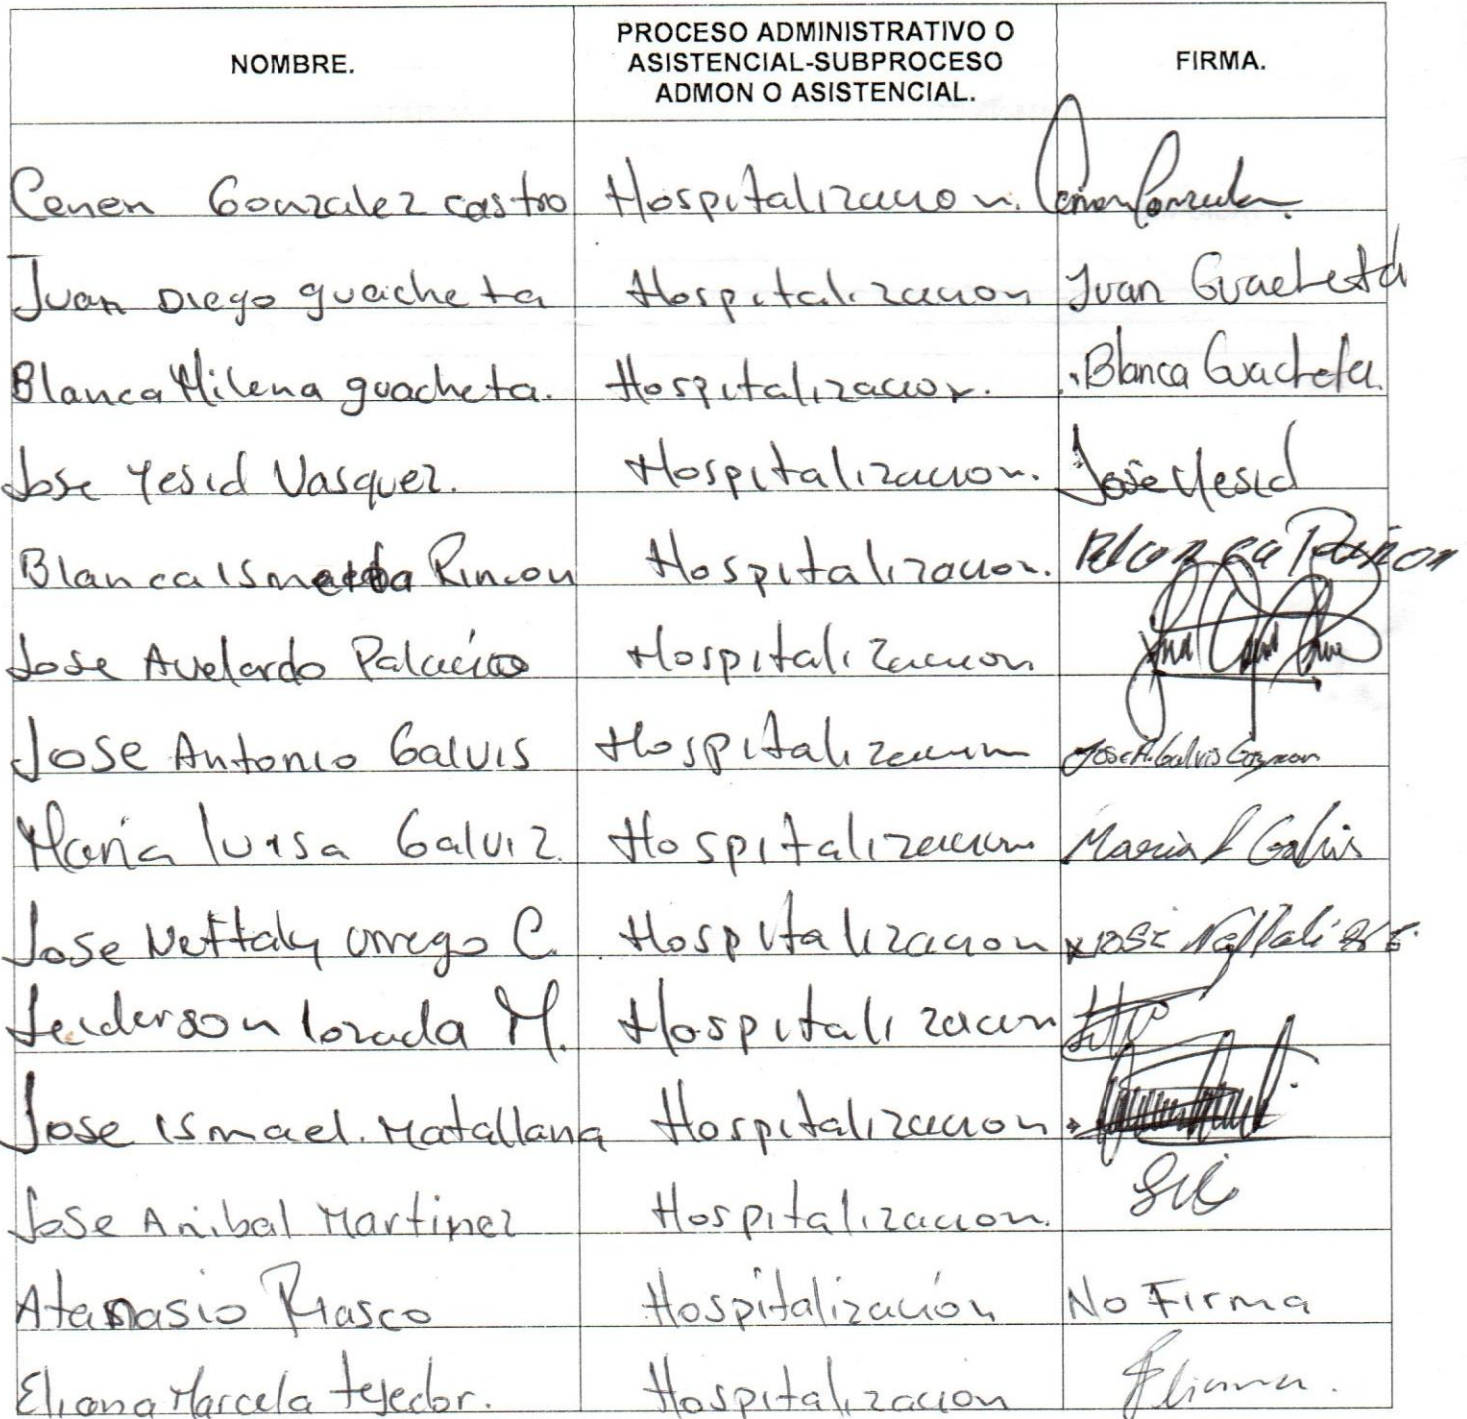 NOMBRE. PROCESO ADMINISTRATIVO O ASISTENCIAL-SUBPROCESO ADMON O ASISTENCIAL. FIRMA.
Cenen Gonzalez castro Hospitalizacion.
Juan Diego guacheta Hospitalizacion Juan Guacheta
Blanca Milena guacheta. Hospitalizacion. Blanca Guacheta.
Jose Yesid Vasquez. Hospitalizacion. Jose Yesid
Blanca Rincon Hospitalizacion. Blanca Rincon
Jose Avelardo Palacio Hospitalizacion
Jose Antonio Galvis Hospitalizacion Jose A. Galvis Guzman
Maria luisa Galviz. Hospitalizacion Maria L Galvis
Jose Neftaly Urrego C. Hospitalizacion Jose Neftali
Leiderson lozada M. Hospitalizacion
Jose Ismael. Matallana Hospitalizacion
Jose Anibal Martinez Hospitalizacion.
Atanasio Riasco Hospitalización No Firma
Eliana Marcela tejedor. Hospitalizacion Eliana.